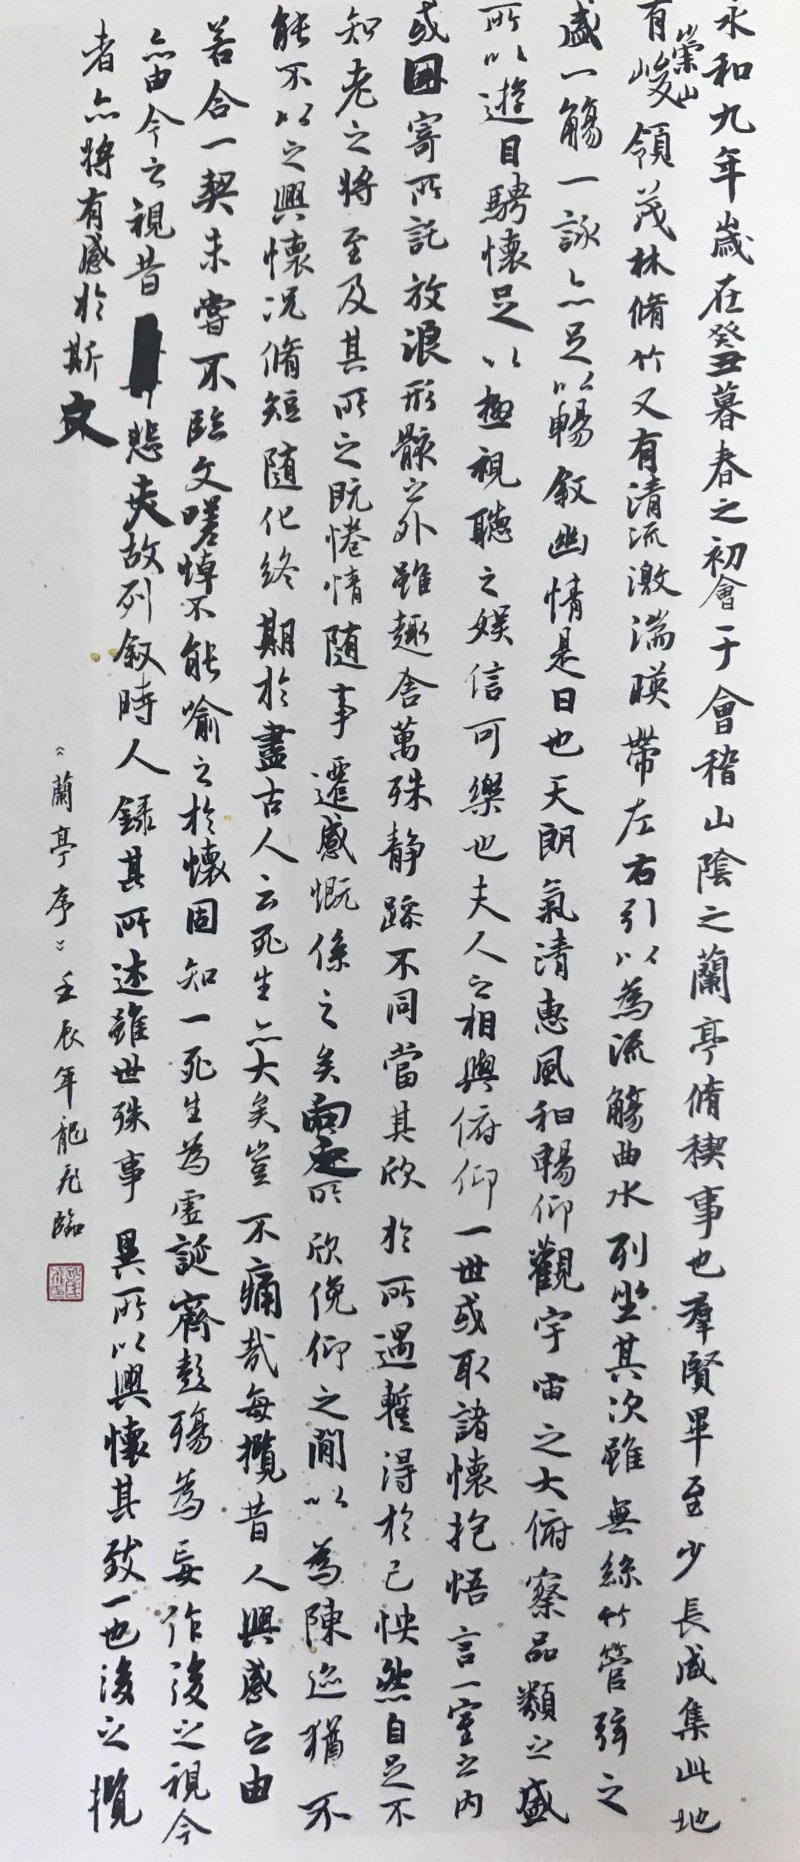 永和九年歲在癸丑暮春之初會于會稽山陰之蘭亭脩稧事也羣賢畢至少長咸集此地
有崇山峻領茂林脩竹又有清流激湍暎帶左右引以為流觴曲水列坐其次雖無絲竹管弦之
盛一觴一詠亦足以暢敘幽情是日也天朗氣清惠風和暢仰觀宇宙之大俯察品類之盛
所以遊目騁懷足以極視聽之娛信可樂也夫人之相與俯仰一世或取諸懷抱悟言一室之內
或因寄所託放浪形骸之外雖趣舍萬殊靜躁不同當其欣於所遇暫得於己怏然自足不
知老之將至及其所之既惓情隨事遷感慨係之矣向之所欣俛仰之間以為陳迹猶不
能不以之興懷況脩短隨化終期於盡古人云死生亦大矣豈不痛哉每攬昔人興感之由
若合一契未嘗不臨文嗟悼不能喻之於懷固知一死生為虛誕齊彭殤為妄作後之視今
亦由今之視昔悲夫故列敘時人錄其所述雖世殊事異所以興懷其致一也後之攬
者亦將有感於斯文
《蘭亭序》壬辰年龍飛臨